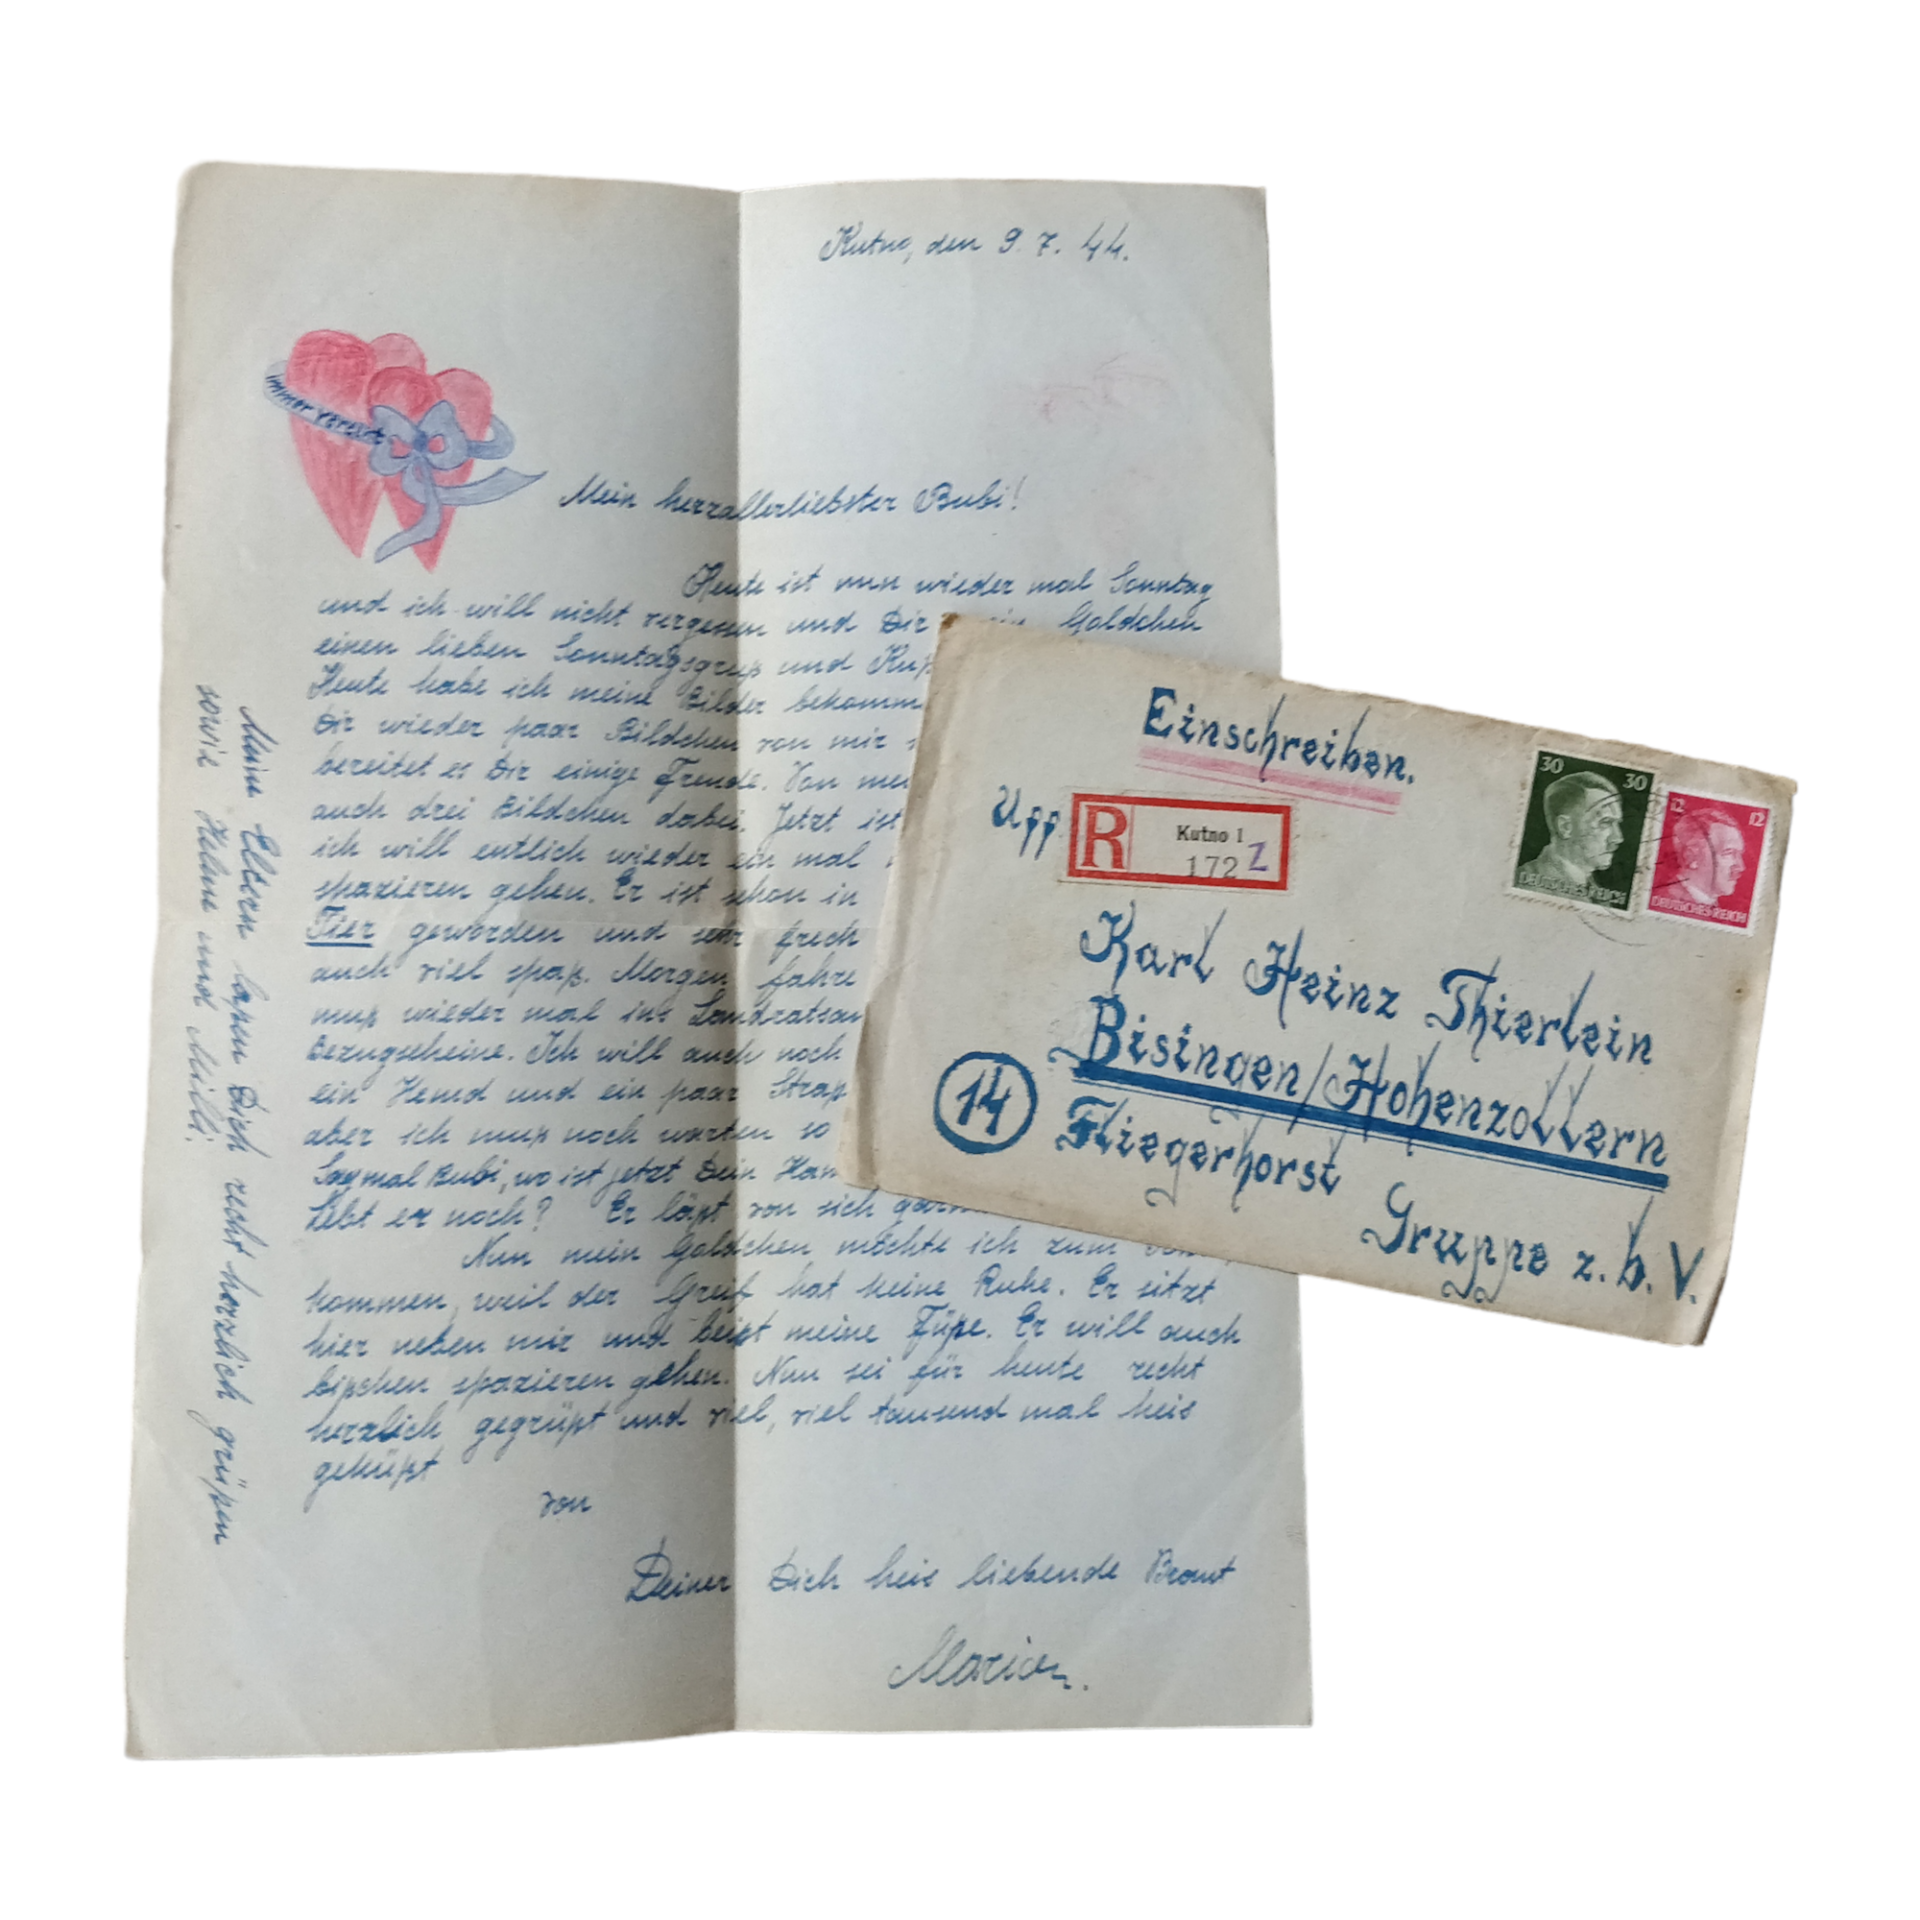 Kutno, den 9. 7. 44.
immer vereint
Mein herzallerliebster Bubi!
Heute ist nun wieder mal Sonntag
und ich will nicht vergessen und Dir Goldchen
einen lieben Sonntagsgruß und Kuß
Heute habe ich meine Bilder bekomm
Dir wieder paar Bildchen von mir
bereitet es Dir einige Freude. Von mei
auch drei Bildchen dabei. Jetzt ist
ich will entlich wieder ein mal
spazieren gehen. Er ist schon in
Tier geworden und sehr frech
auch viel spaß. Morgen fahre
muß wieder mal ins Landratsam
Bezugscheine. Ich will auch noch
ein Hemd und ein paar Strap
aber ich muß noch warten so
Sag mal Bubi, wo ist jetzt Dein Han
Lebt er noch? Er läßt von sich gar
Nun mein Goldchen möchte ich zum
kommen, weil der Greif hat keine Ruhe. Er sitzt
hier neben mir und beißt meine Füße. Er will auch
bißchen spazieren gehen. Nun sei für heute recht
herzlich gegrüßt und viel, viel tausend mal heis
geküßt
von
Deiner Dich heis liebende Braut
Marion.
Meine Eltern laßen Dich recht herzlich grüßen
sowie Helme und Milli.
Einschreiben.
Uffz.
R
Kutno 1
172
Z
30 30
DEUTSCHES REICH
12 12
DEUTSCHES REICH
Karl Heinz Thierlein
Bisingen/Hohenzollern
14
Fliegerhorst
Gruppe z. b. V.